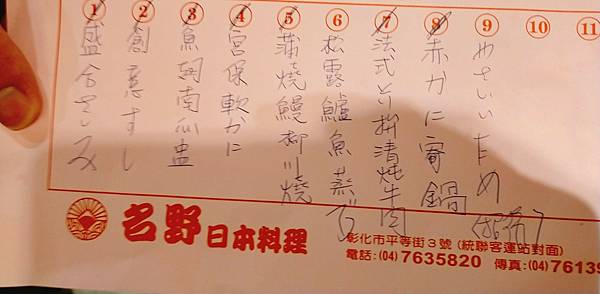 ① ② ③ ④ ⑤ ⑥ ⑦ ⑧ ⑨ ⑩ ⑪
盛合さしみ
創意すし
魚翅南瓜盅
宮保軟かに
蒲燒鰻柳川燒
松露鱸魚蒸で
法式とり拼清炖牛肉
赤かに寄鍋
やさいいため
名野日本料理
彰化市平等街3號(統聯客運站對面)
電話:(04)7635820 傳真:(04)76139